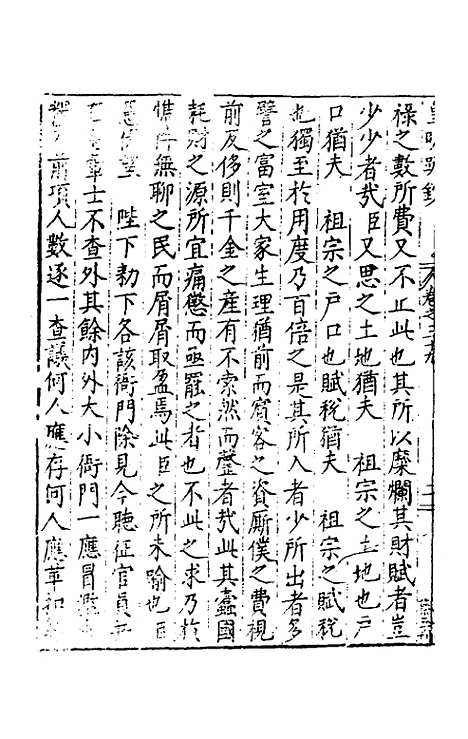 皇明疏鈔 卷之二十九
祿之數所費又不止此也其所以糜爛其財賦者豈
少少者哉臣又思之土地猶夫 祖宗之土地也戶
口猶夫 祖宗之戶口也賦稅猶夫 祖宗之賦稅
也獨至於用度乃百倍之是其所入者少所出者多
譬之富室大家生理猶前而賓客之資厮僕之費視
前反侈則千金之產有不索然而罄者哉此其蠹國
耗財之源所宜痛懲而亟罷之者也不此之求乃於
憔悴無聊之民而屑屑取盈焉此臣之所未喻也臣
愚伏望 陛下勑下各該衙門除見今聽征官員
軍士不查外其餘內外大小衙門一應冒濫
前項人數逐一查議何人應存何人應革